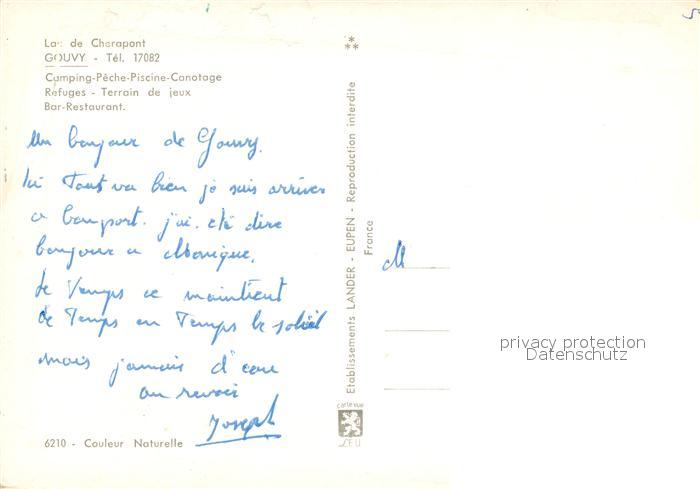 Lac de Cherapont
GOUVY - Tél. 17082
Camping-Pêche-Piscine-Canotage
Refuges - Terrain de jeux
Bar-Restaurant.
Un bonjour de Gouvy.
ici Tout va bien je suis arriver
a bonport. j'ai. été dire
bonjour a Monique.
Le Temps ce maintient
de Temps en Temps le soleil
mais jamais d'eau
au revoir
Joseph
6210 - Couleur Naturelle
Etablissements LANDER - EUPEN - Reproduction interdite
France
M
carte vue
L.E.U
privacy protection
Datenschutz